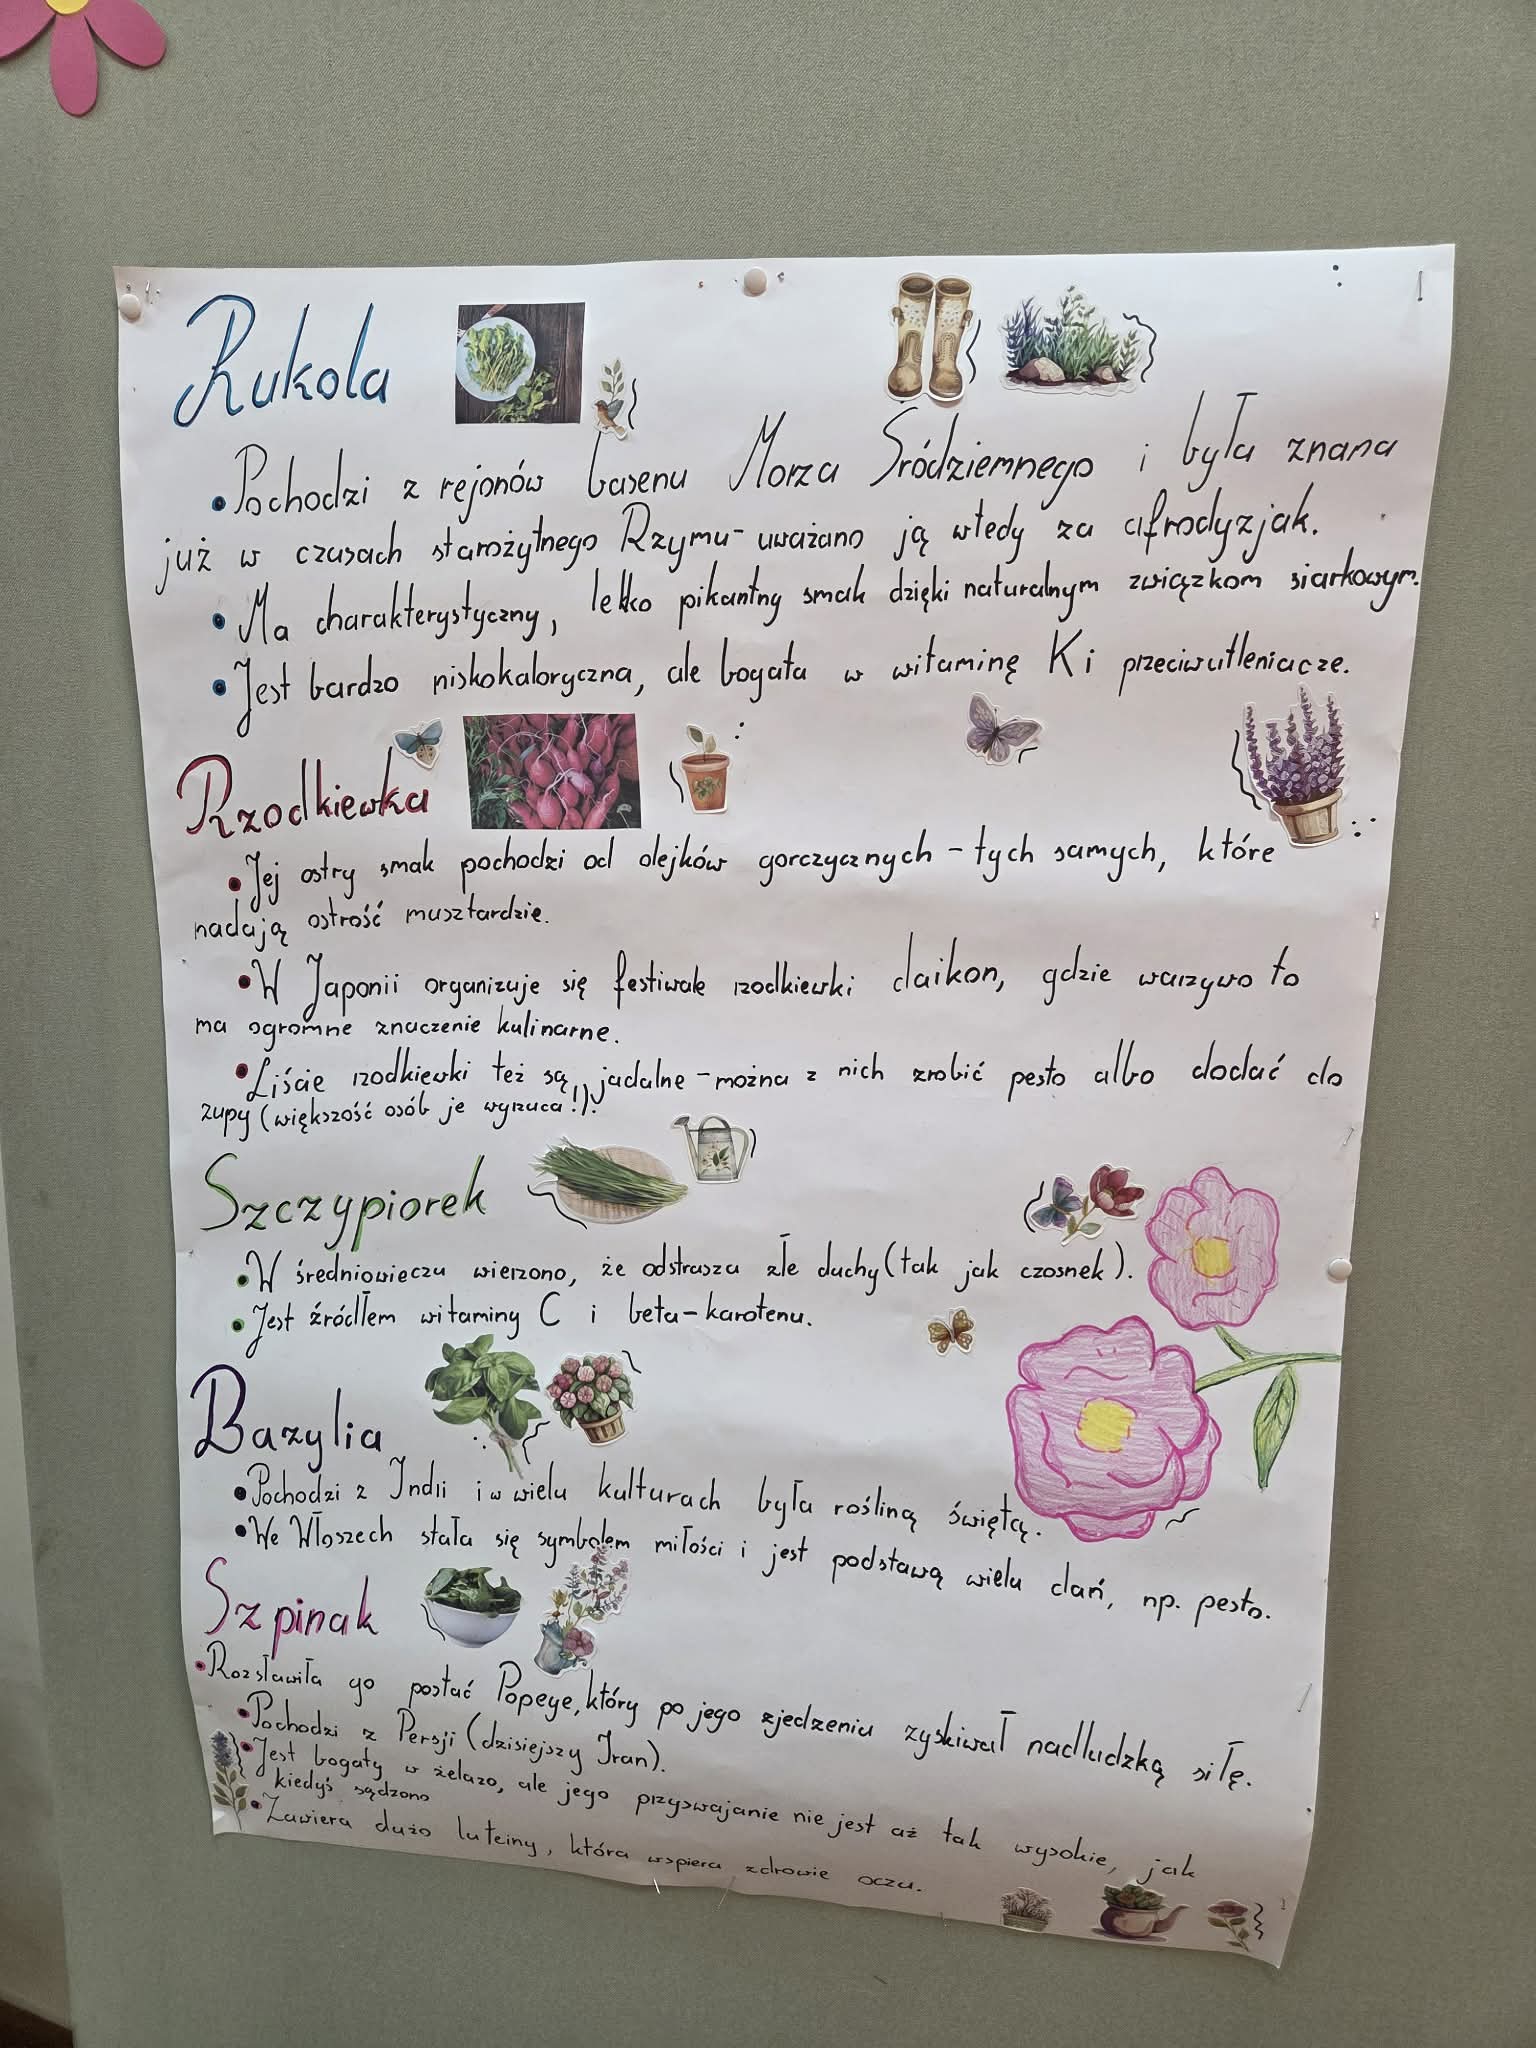 Rukola
• Pochodzi z rejonów basenu Morza Śródziemnego i była znana
już w czasach starożytnego Rzymu - uważano ją wtedy za afrodyzjak.
• Ma charakterystyczny, lekko pikantny smak dzięki naturalnym związkom siarkowym.
• Jest bardzo niskokaloryczna, ale bogata w witaminę K i przeciwutleniacze.
Rzodkiewka
• Jej ostry smak pochodzi od olejków gorczycznych - tych samych, które
nadają ostrość musztardzie.
• W Japonii organizuje się festiwale rzodkiewki daikon, gdzie warzywo to
ma ogromne znaczenie kulinarne.
• Liście rzodkiewki też są jadalne - można z nich zrobić pesto albo dodać do
zupy (większość osób je wyrzuca!).
Szczypiorek
• W średniowieczu wierzono, że odstrasza złe duchy (tak jak czosnek).
• Jest źródłem witaminy C i beta-karotenu.
Bazylia
• Pochodzi z Indii i w wielu kulturach była rośliną świętą.
• We Włoszech stała się symbolem miłości i jest podstawą wielu dań, np. pesto.
Szpinak
• Rozsławiła go postać Popeye, który po jego zjedzeniu zyskiwał nadludzką siłę.
• Pochodzi z Persji (dzisiejszy Iran).
• Jest bogaty w żelazo, ale jego przyswajanie nie jest aż tak wysokie, jak
kiedyś sądzono
• Zawiera dużo luteiny, która wspiera zdrowie oczu.